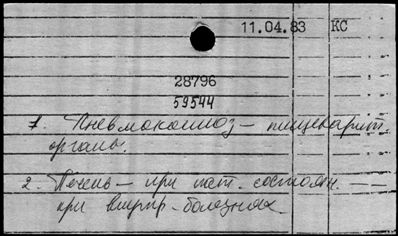 11.04.83 КС
28796
59544
1. Пневмокониоз – пищеварит.
органы.
2. Печень – при пат. состоян. —
при внутр. болезнях.